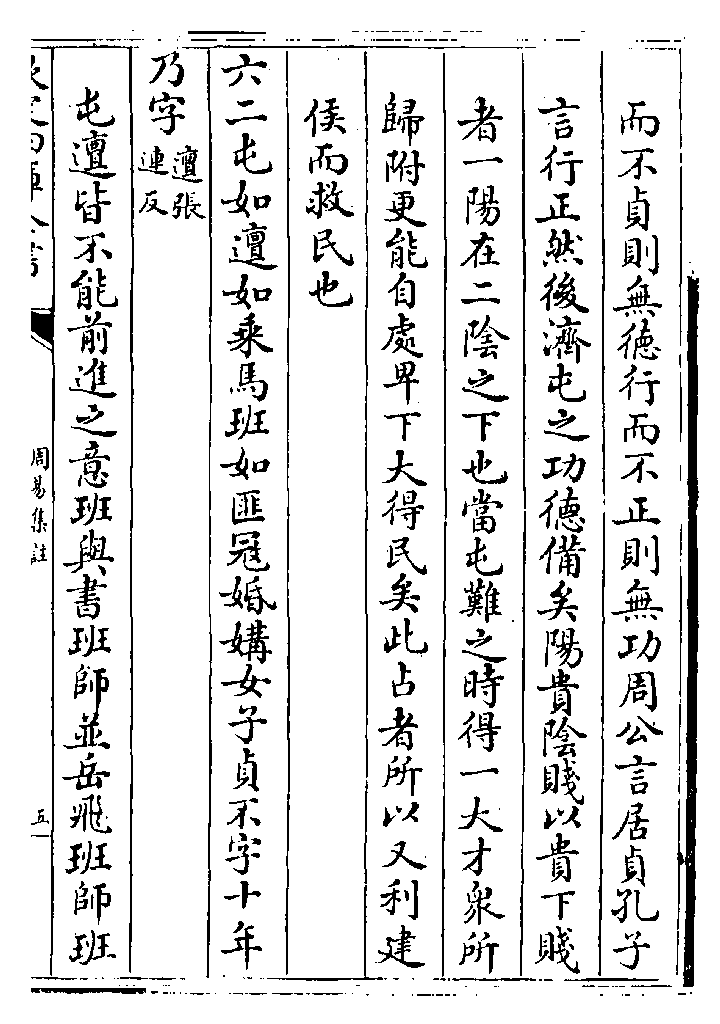 而不貞則無德行而不正則無功周公言居貞孔子
言行正然後濟屯之功德備矣陽貴陰賤以貴下賤
者一陽在二陰之下也當屯難之時得一大才衆所
歸附更能自處卑下大得民矣此占者所以又利建
侯而救民也
六二屯如邅如乘馬班如匪冦婚媾女子貞不字十年
乃字
邅張
連反
屯邅皆不能前進之意班與書班師並岳飛班師班
周易集註
五